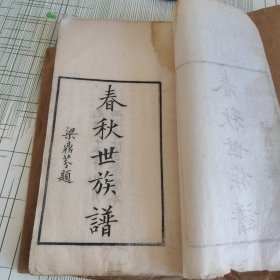 春秋世族譜
梁鼎芬題